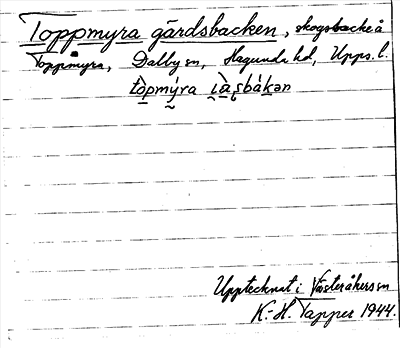 Toppmyra gärdsbacken, skogsbacke å
Toppmyra, Dalby sn, Hagunda hd, Upps. l.
Upptecknat i Västeråkers sn
K.-H. Tapper 1944.